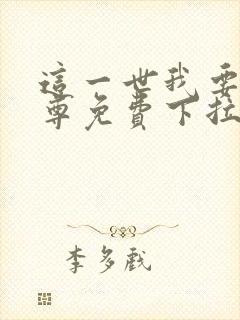 這一世我要
尊免費下拉
李多戲